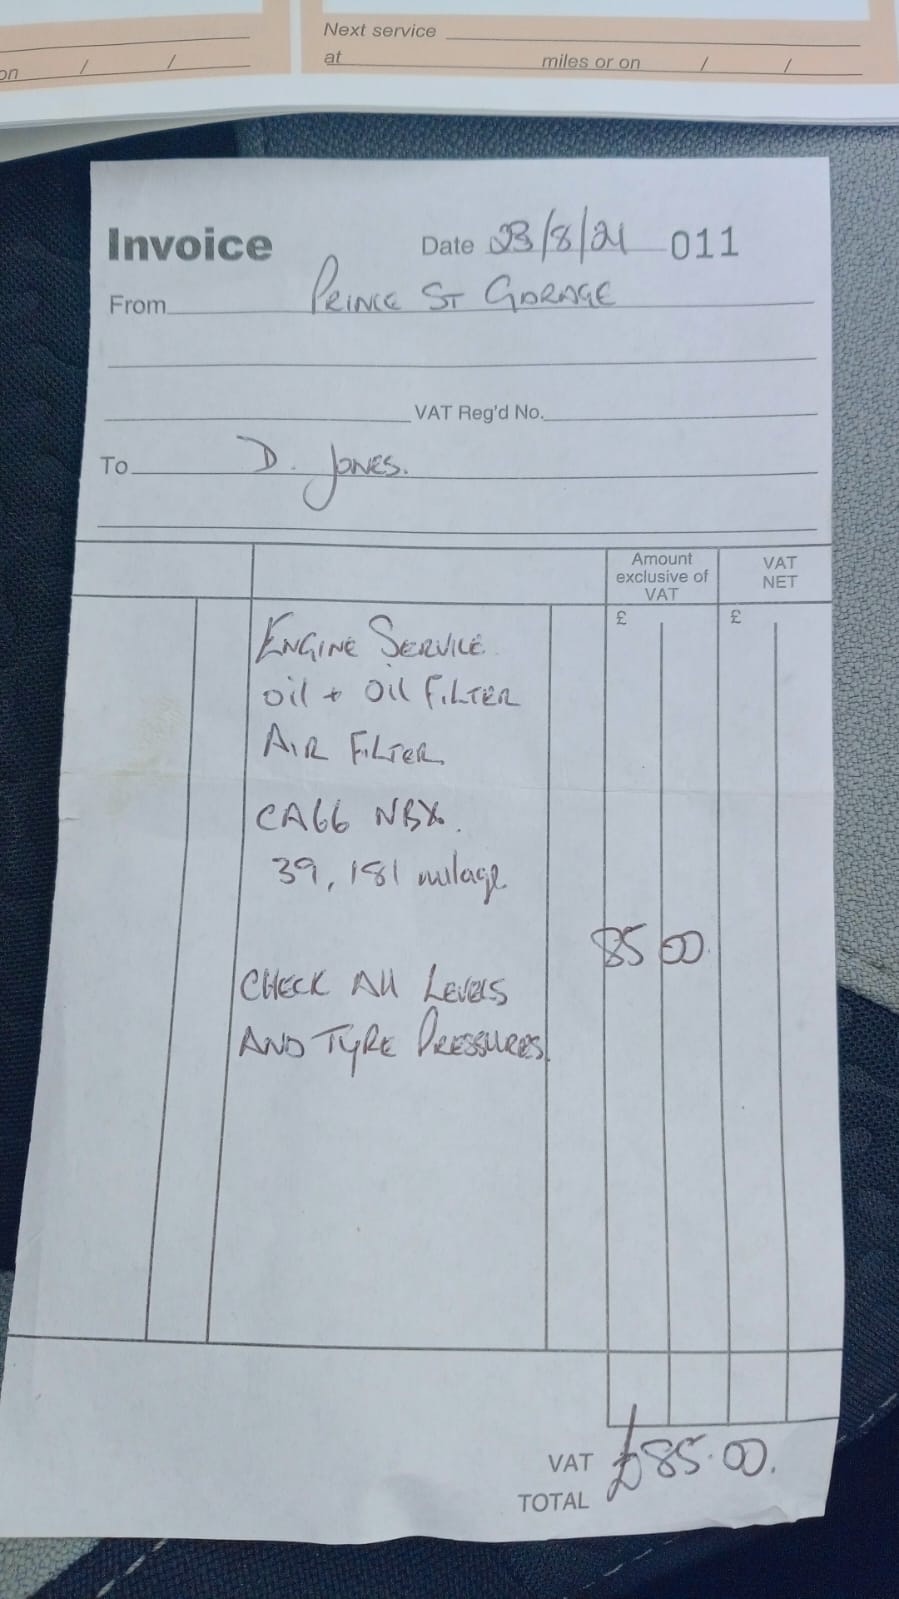 Next service
on / /
at miles or on / /
Invoice Date 23/8/21 011
From PRINCE ST GARAGE
VAT Reg'd No.
To D. JONES.
Amount exclusive of VAT
VAT NET
£ £
ENGINE SERVICE
OIL + OIL FILTER
AIR FILTER
CA66 NBX.
39,181 milage
85 00.
CHECK ALL LEVELS
AND TYRE PRESSURES
VAT
TOTAL £85.00.